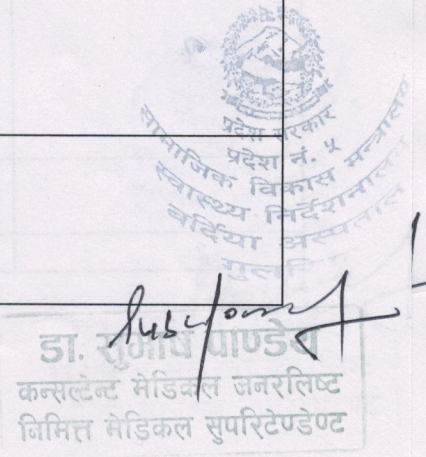 प्रदेश सरकार
प्रदेश नं. ५
सामाजिक विकास मन्त्रालय
स्वास्थ्य निर्देशनालय
बर्दिया अस्पताल
डा. सुभाष पाण्डेय
कन्सल्टेन्ट मेडिकल जनरलिष्ट
निमित्त मेडिकल सुपरिटेण्डेण्ट